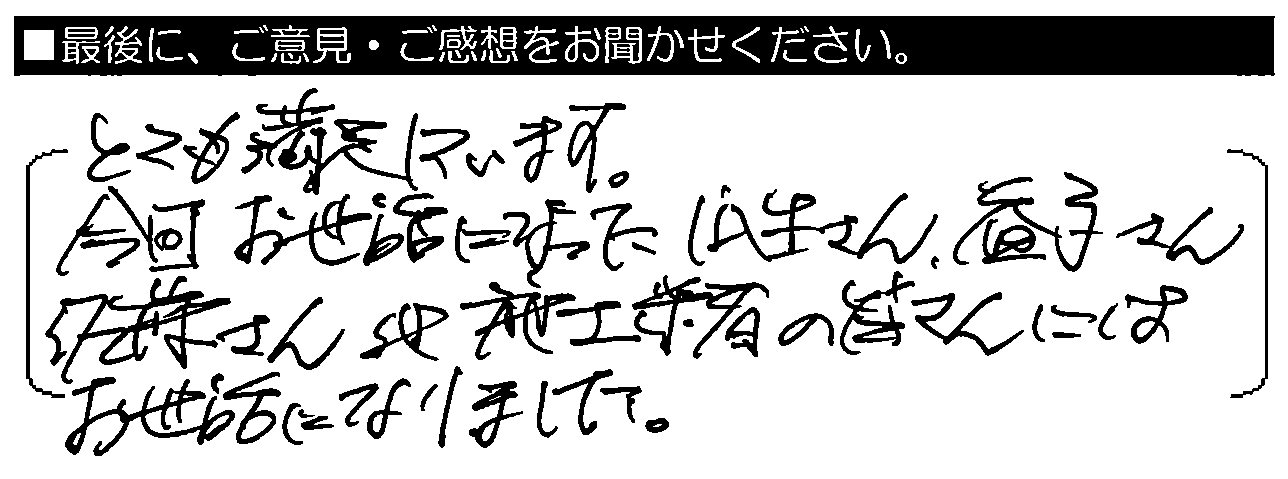 ■最後に、ご意見・ご感想をお聞かせください。
とても満足しています。
今回お世話になった 生さん、 子さん
佐藤さんや施工業者の皆さんには
お世話になりました。